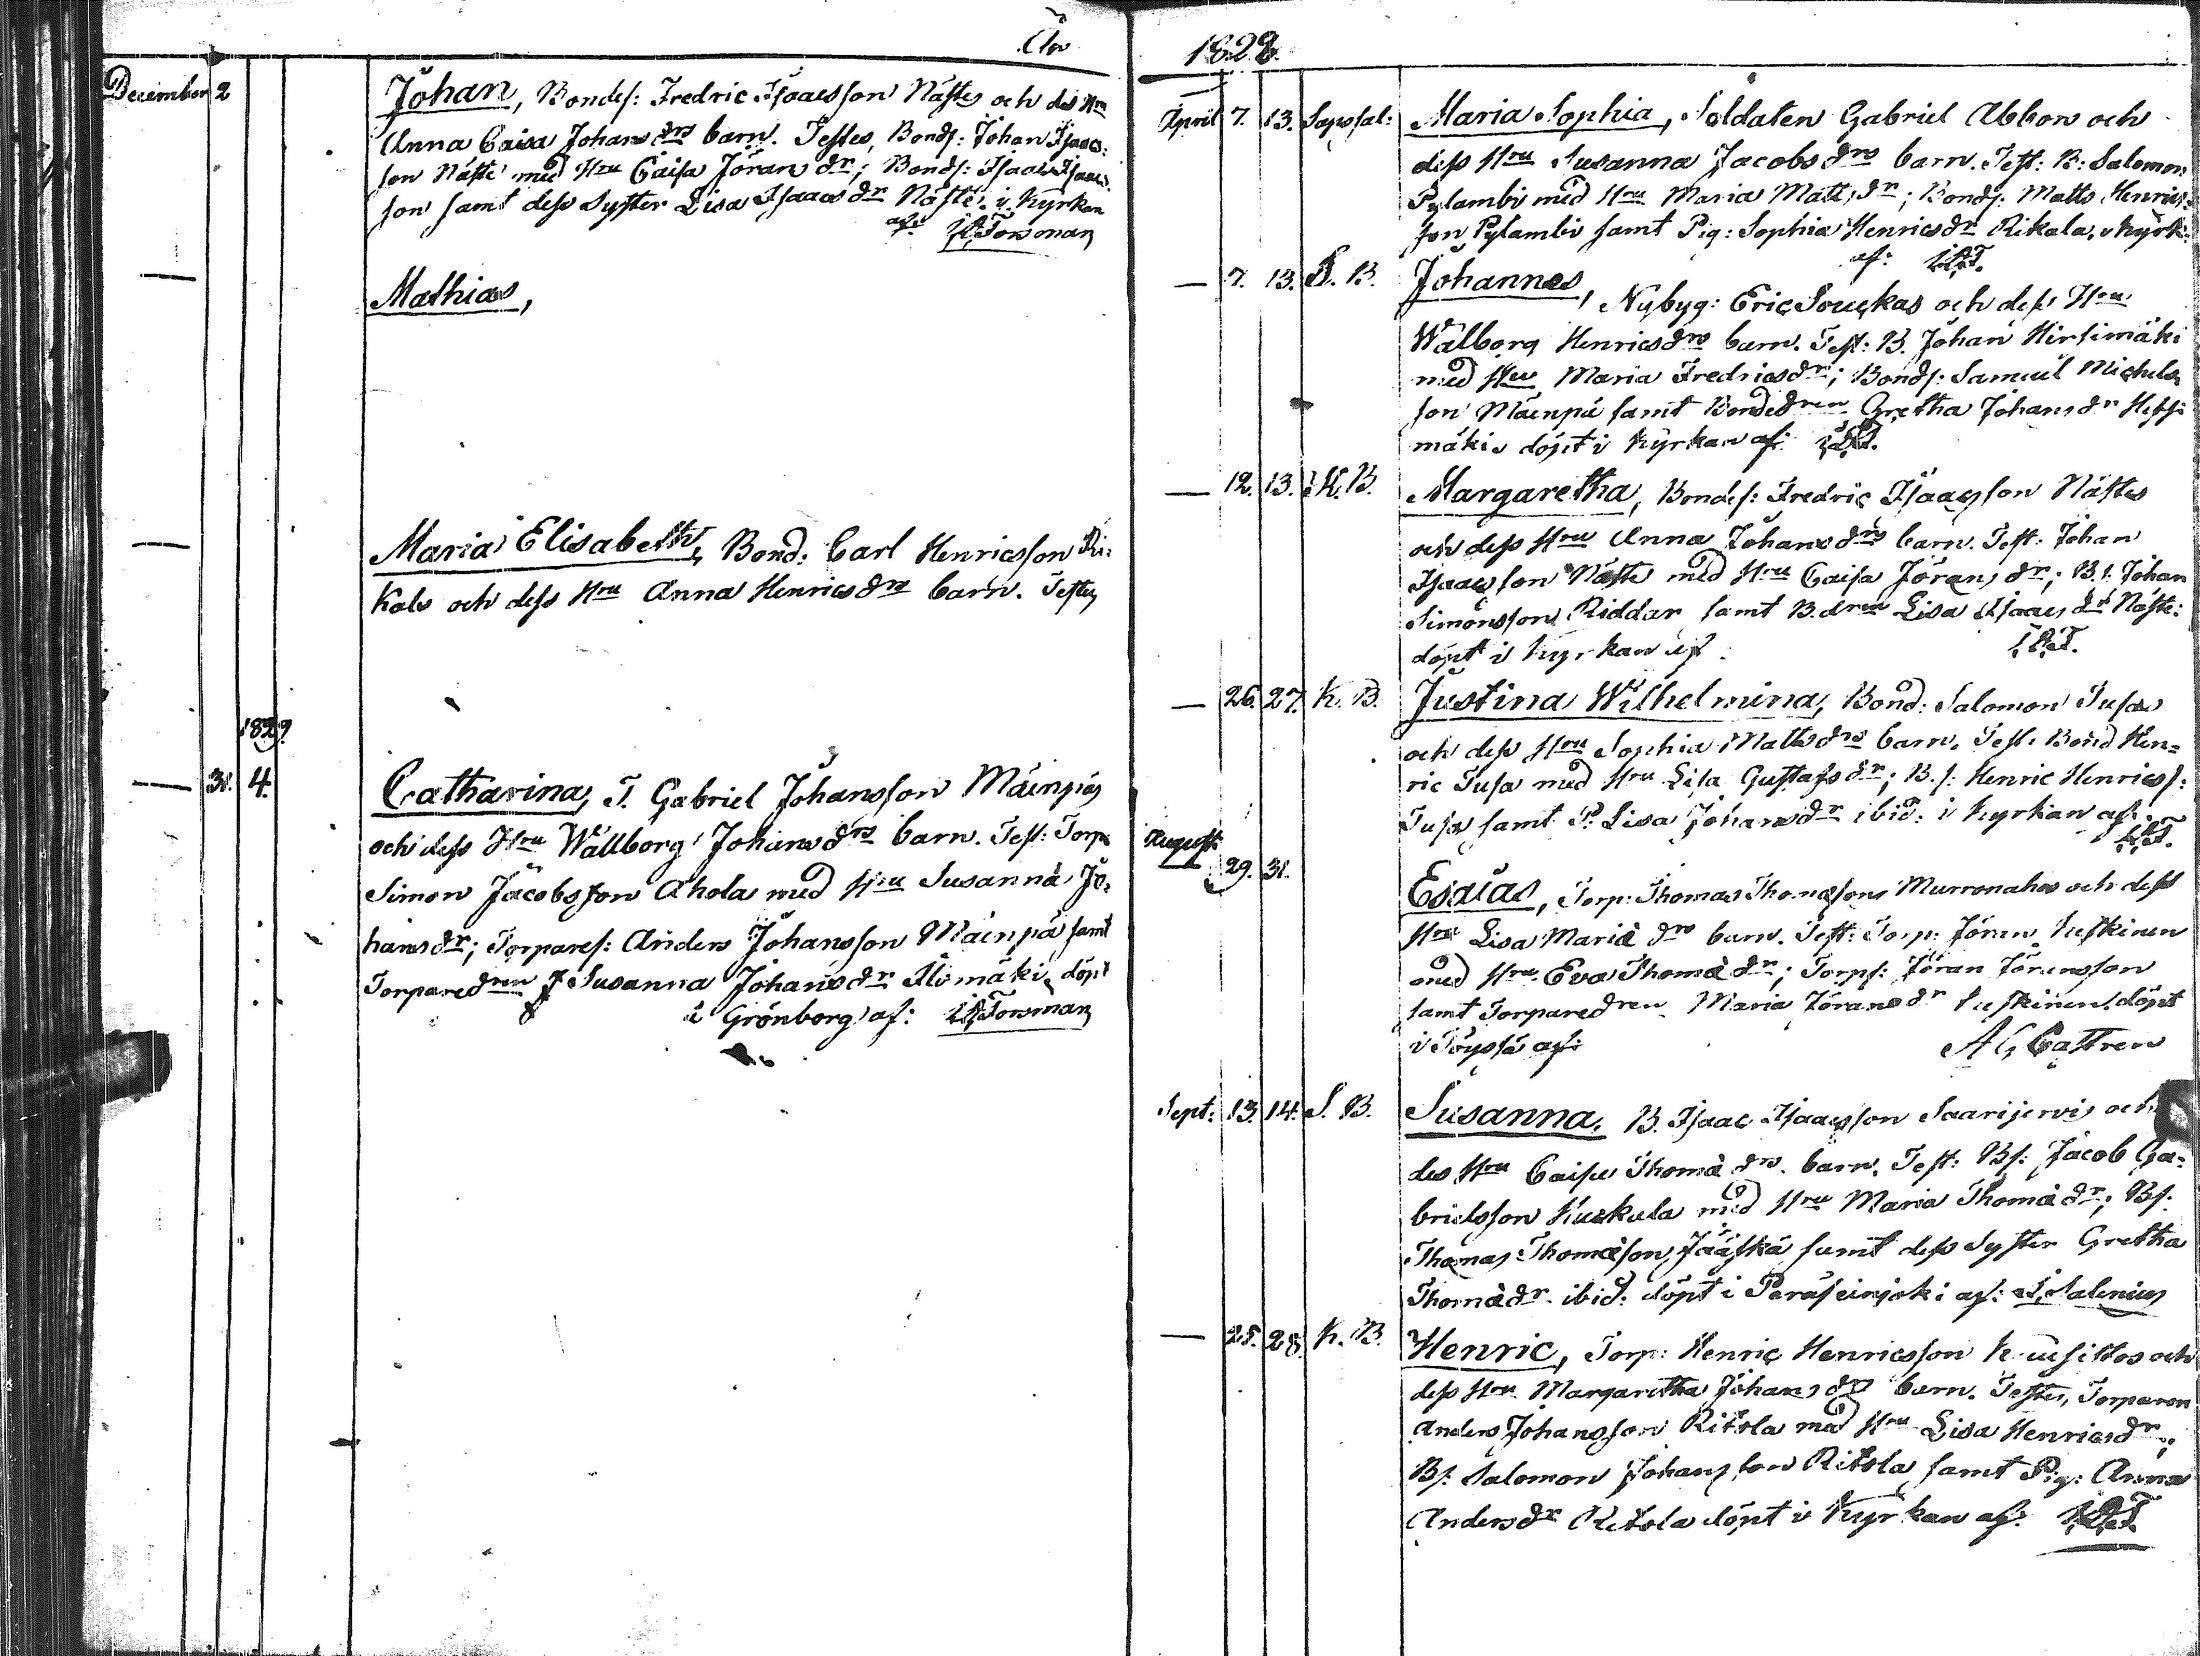 År
December 2
Johan, Bondes: Fredric Isaacsson Näste och des Hru
Anna Caisa Johansdrs barn. Testes, Bonds: Johan Isaacs:
son Näste med Hru Caisa Jöransdr; Bonds: Isaac Isaacs
son samt dess Syster Lisa Isaacsdr Näste. i Kyrkan
af: Forsman
— Mathias,
— Maria Elisabeth, Bond: Carl Henricsson Ri:
kala och dess Hru Anna Henricsdrs barn. Testes
1829
— 31. 4. Catharina, T. Gabriel Johansson Mäinpäs
och dess Hru Wallborg Johansdrs barn. Test: Torp:
Simon Jacobsson Ahola med Hru Susanna Jo:
hansdr; Torpares: Anders Johansson Mäinpä samt
Torparedren Susanna Johansdr Alimäki, döpt
i Grönborg af: Forsman
1828.
April 7. 13. Maria Sophia, Soldaten Gabriel Abbor och
dess Hru Susanna Jacobsdrs barn. Test: B: Salomon
Pylambi med Hru Maria Mattsdr; Bonds: Matts Henrics:
son Pylambi samt Pig: Sophia Henricsdr Rikala, i Kyrk:
af:
— 7. 13. B. Johannes, Nybyg: Eric Souckas och dess Hru
Walborg Henricsdrs barn. Test: B. Johan Hirsimäki
med Hru Maria Fredricsdr; Bonds: Samuel Michels
son Mäenpää samt Bondedren Gretha Johansdr
mäki döpt i Kyrkan af:
— 12. 13. K. B. Margaretha, Bondes: Fredric Isaacsson Nästes
och dess Hru Anna Johansdrs barn. Test: Johan
Isaacsson Näste med Hru Caisa Jöransdr; B.s. Johan
Simonsson Riddar samt B.dren Lisa Isaacsdr Näste:
döpt i Kyrkan af
— 26. 27. K. B. Justina Wilhelmina, Bond: Salomon Tusas
och dess Hru Sophia Mattsdrs barn. Test: Bond Hen=
ric Tusa med Hru Lisa Gustafsdr; B.s: Henric Henricss:
Tusa samt P. Lisa Johansdr ibid: i Kyrkan af:
August
29. 31. Esaias, Torp: Thomas Thomasson Murronahos och dess
Hru Lisa Maria drs barn. Test: Torp: Jöran
med Hru Eva Thomædr; Torps: Jöran Jöransson
samt Torparedren Maria Jöransdr döpt
i Töysä af: Castren
Sept: 13. 14. S. B. Susanna, B. Isaac Isaacsson Saarijervis och
des Hru Caisa Thomædrs barn. Test: Bs: Jacob Ga:
brielsson Kuckula med Hru Maria Thomædr; Bs.
Thomas Thomæson Jääskä samt dess Syster Gretha
Thomædr ibid: döpt i Peräseinjoki af: Salenius
— 25. 28. K. B. Henric, Torp: Henric Henricsson och
dess Hru Margaretha Johansdrs barn. Testes, Torparen
Anders Johansson Ritola med Hru Lisa Henricsdr;
Bs: Salomon Johansson Ritola samt Pig: Anna
Andersdr Ritola döpt i Kyrkan af: